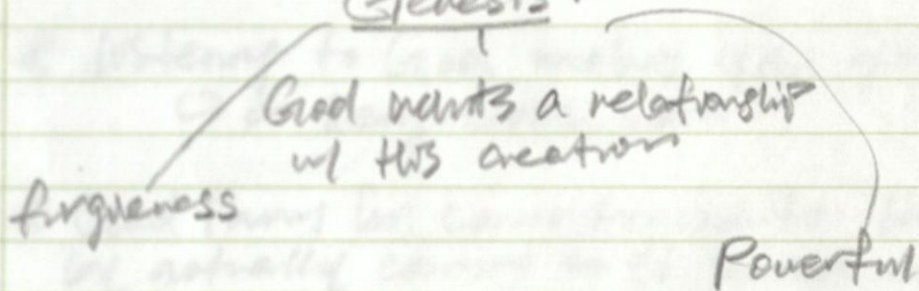 Genesis
God wants a relationship
w/ His creation
forgiveness
Powerful